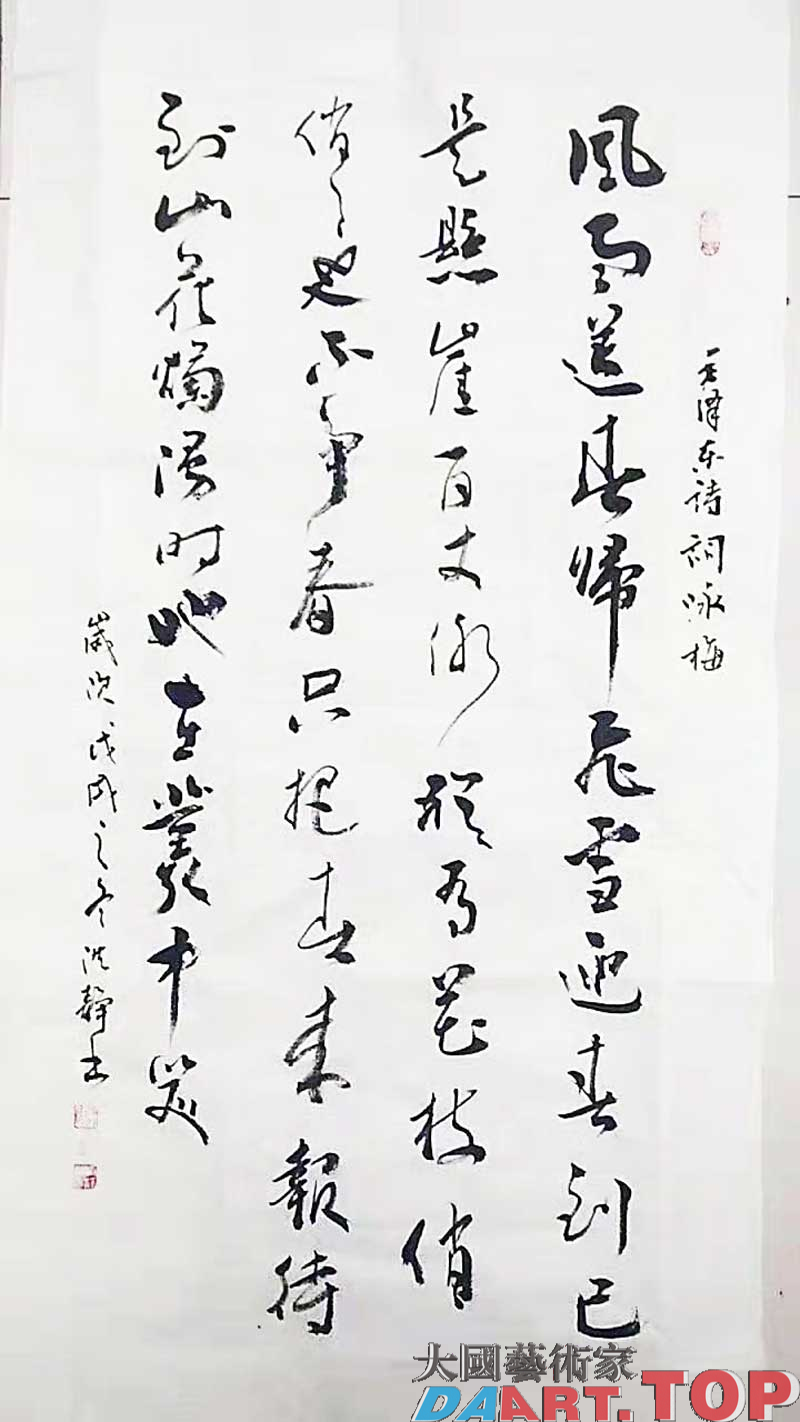 毛泽东诗詞咏梅
風雨送春歸飛雪迎春到已
是懸崖百丈冰猶有花枝俏
俏々也不争春只把春来報待
到山花爛漫时她在叢中笑
歲次戊戌之冬洪静书
大國藝術家
DAART.TOP